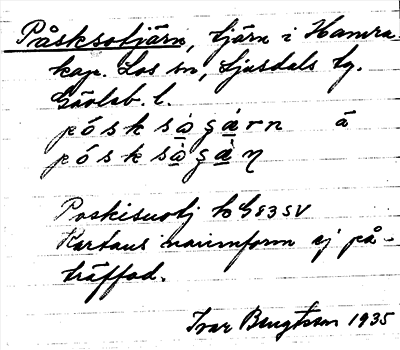 Påsksotjärn, tjärn i Hamra
kap. Los sn, Ljusdals tg.
Gävleb. l.
póskso̱ga̱rn å
póskso̱ga̱n
Poskisuotj kbG83SV
Kartans namnform ej på-
träffad.
Ivar Bengtsson 1935